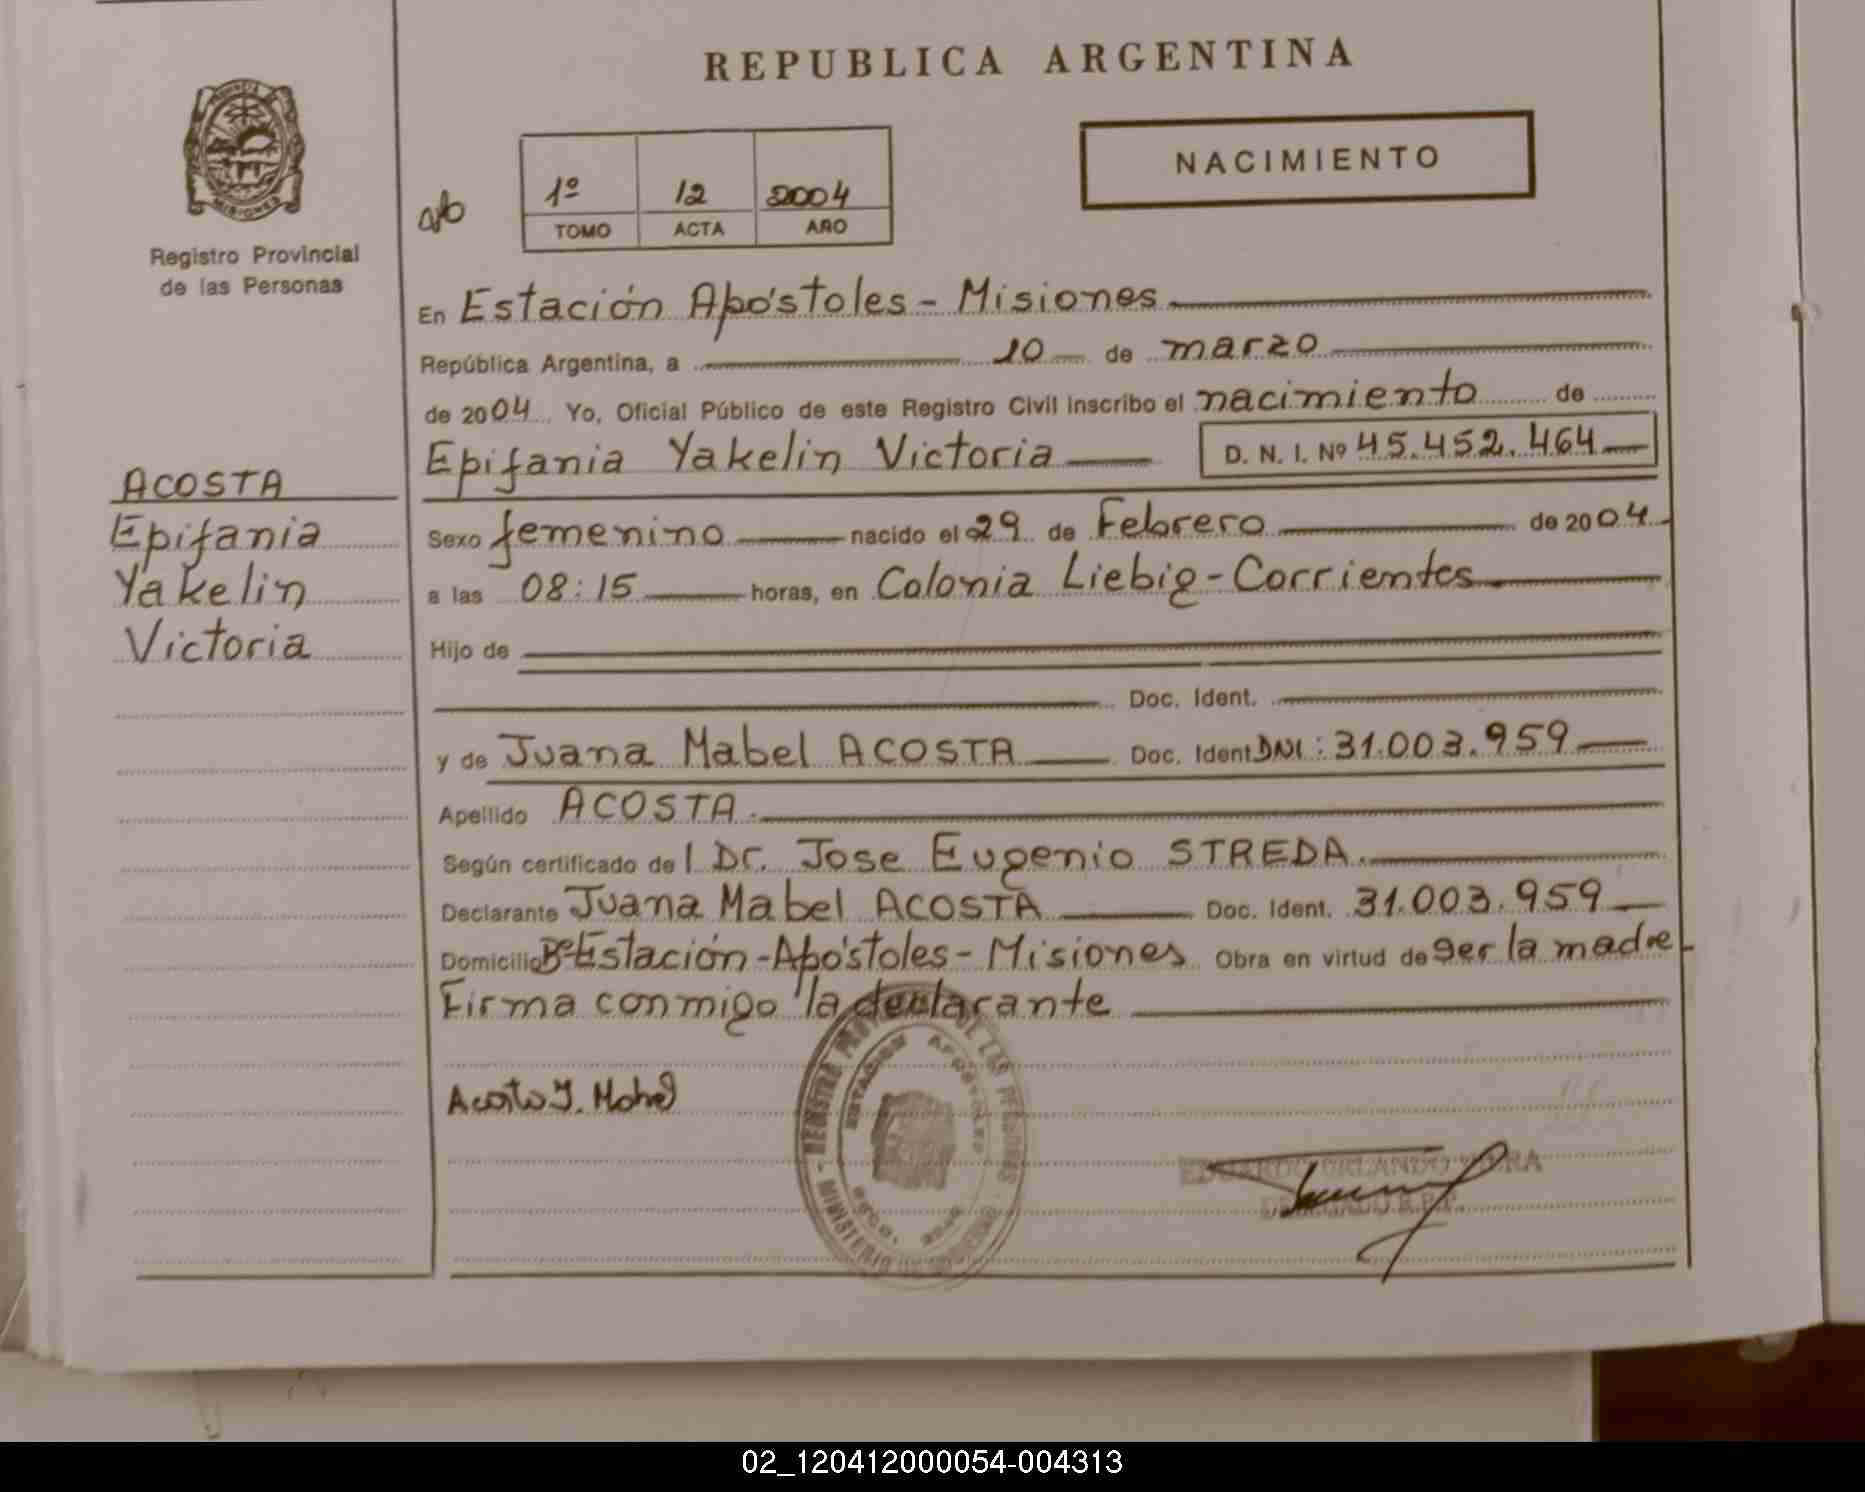 REPUBLICA ARGENTINA
NACIMIENTO
1º 12 2004
TOMO ACTA AÑO
MISIONES
Registro Provincial
de las Personas
En Estación Apóstoles - Misiones
República Argentina, a 10 de marzo
de 2004 Yo, Oficial Público de este Registro Civil inscribo el nacimiento de
Epifania Yakelin Victoria D. N. I. Nº 45.452.464
ACOSTA
Epifania
Yakelin
Victoria
Sexo femenino nacido el 29 de Febrero de 2004
a las 08:15 horas, en Colonia Liebig - Corrientes
Hijo de
Doc. Ident.
y de Juana Mabel ACOSTA Doc. Ident DNI: 31.003.959
Apellido ACOSTA.
Según certificado de l Dr. Jose Eugenio STREDA.
Declarante Juana Mabel ACOSTA Doc. Ident. 31.003.959
Domicilio Bº Estación - Apóstoles - Misiones Obra en virtud de ser la madre
Firma conmigo la declarante
Acosta J. Mabel
ESTACION APOSTOLES
EDUARDO ORLANDO
DELEGADO R.P.P.
02_120412000054-004313